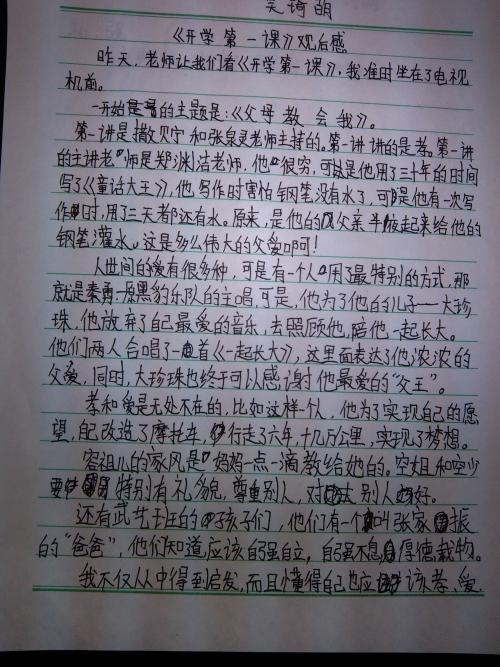 吴琦明
《开学第一课》观后感
昨天,老师让我们看《开学第一课》,我准时坐在了电视
机前。
一开始是的主题是:《父母教会我》。
第一讲是撒贝宁和张泉灵老师主持的。第一讲讲的是孝。第一讲
的主讲老师是郑渊洁老师,他很穷,可是他用了三十年的时间
写了《童话大王》,他写作时害怕钢笔没有水了,可是他有一次写
作时,用了三天都还有水。原来,是他的父亲半夜起来给他的
钢笔灌水。这是多么伟大的父爱啊!
人世间的爱有很多种,可是有一个人用了最特别的方式,那
就是秦勇—原黑豹乐队的主唱,可是,他为了他的儿子——大珍
珠,他放弃了自己最爱的音乐,去照顾他,陪他一起长大。
他们两人合唱了一首《一起长大》,这里面表达了他浓浓的
父爱,同时,大珍珠也终于可以感谢他最爱的“父王”。
孝和爱是无处不在的,比如这样一个人,他为了实现自己的愿
望,自己改造了摩托车,行走了六年,十几万公里,实现了梦想。
容祖儿的家风是“妈妈一点一滴教给她的。空姐和空少
特别有礼貌,尊重别人,对别人好。
还有武艺班的孩子们,他们有一个叫张家振
的“爸爸”,他们知道应该自强自立,自强不息,厚德载物。
我不仅从中得到启发,而且懂得自己也应该孝、爱